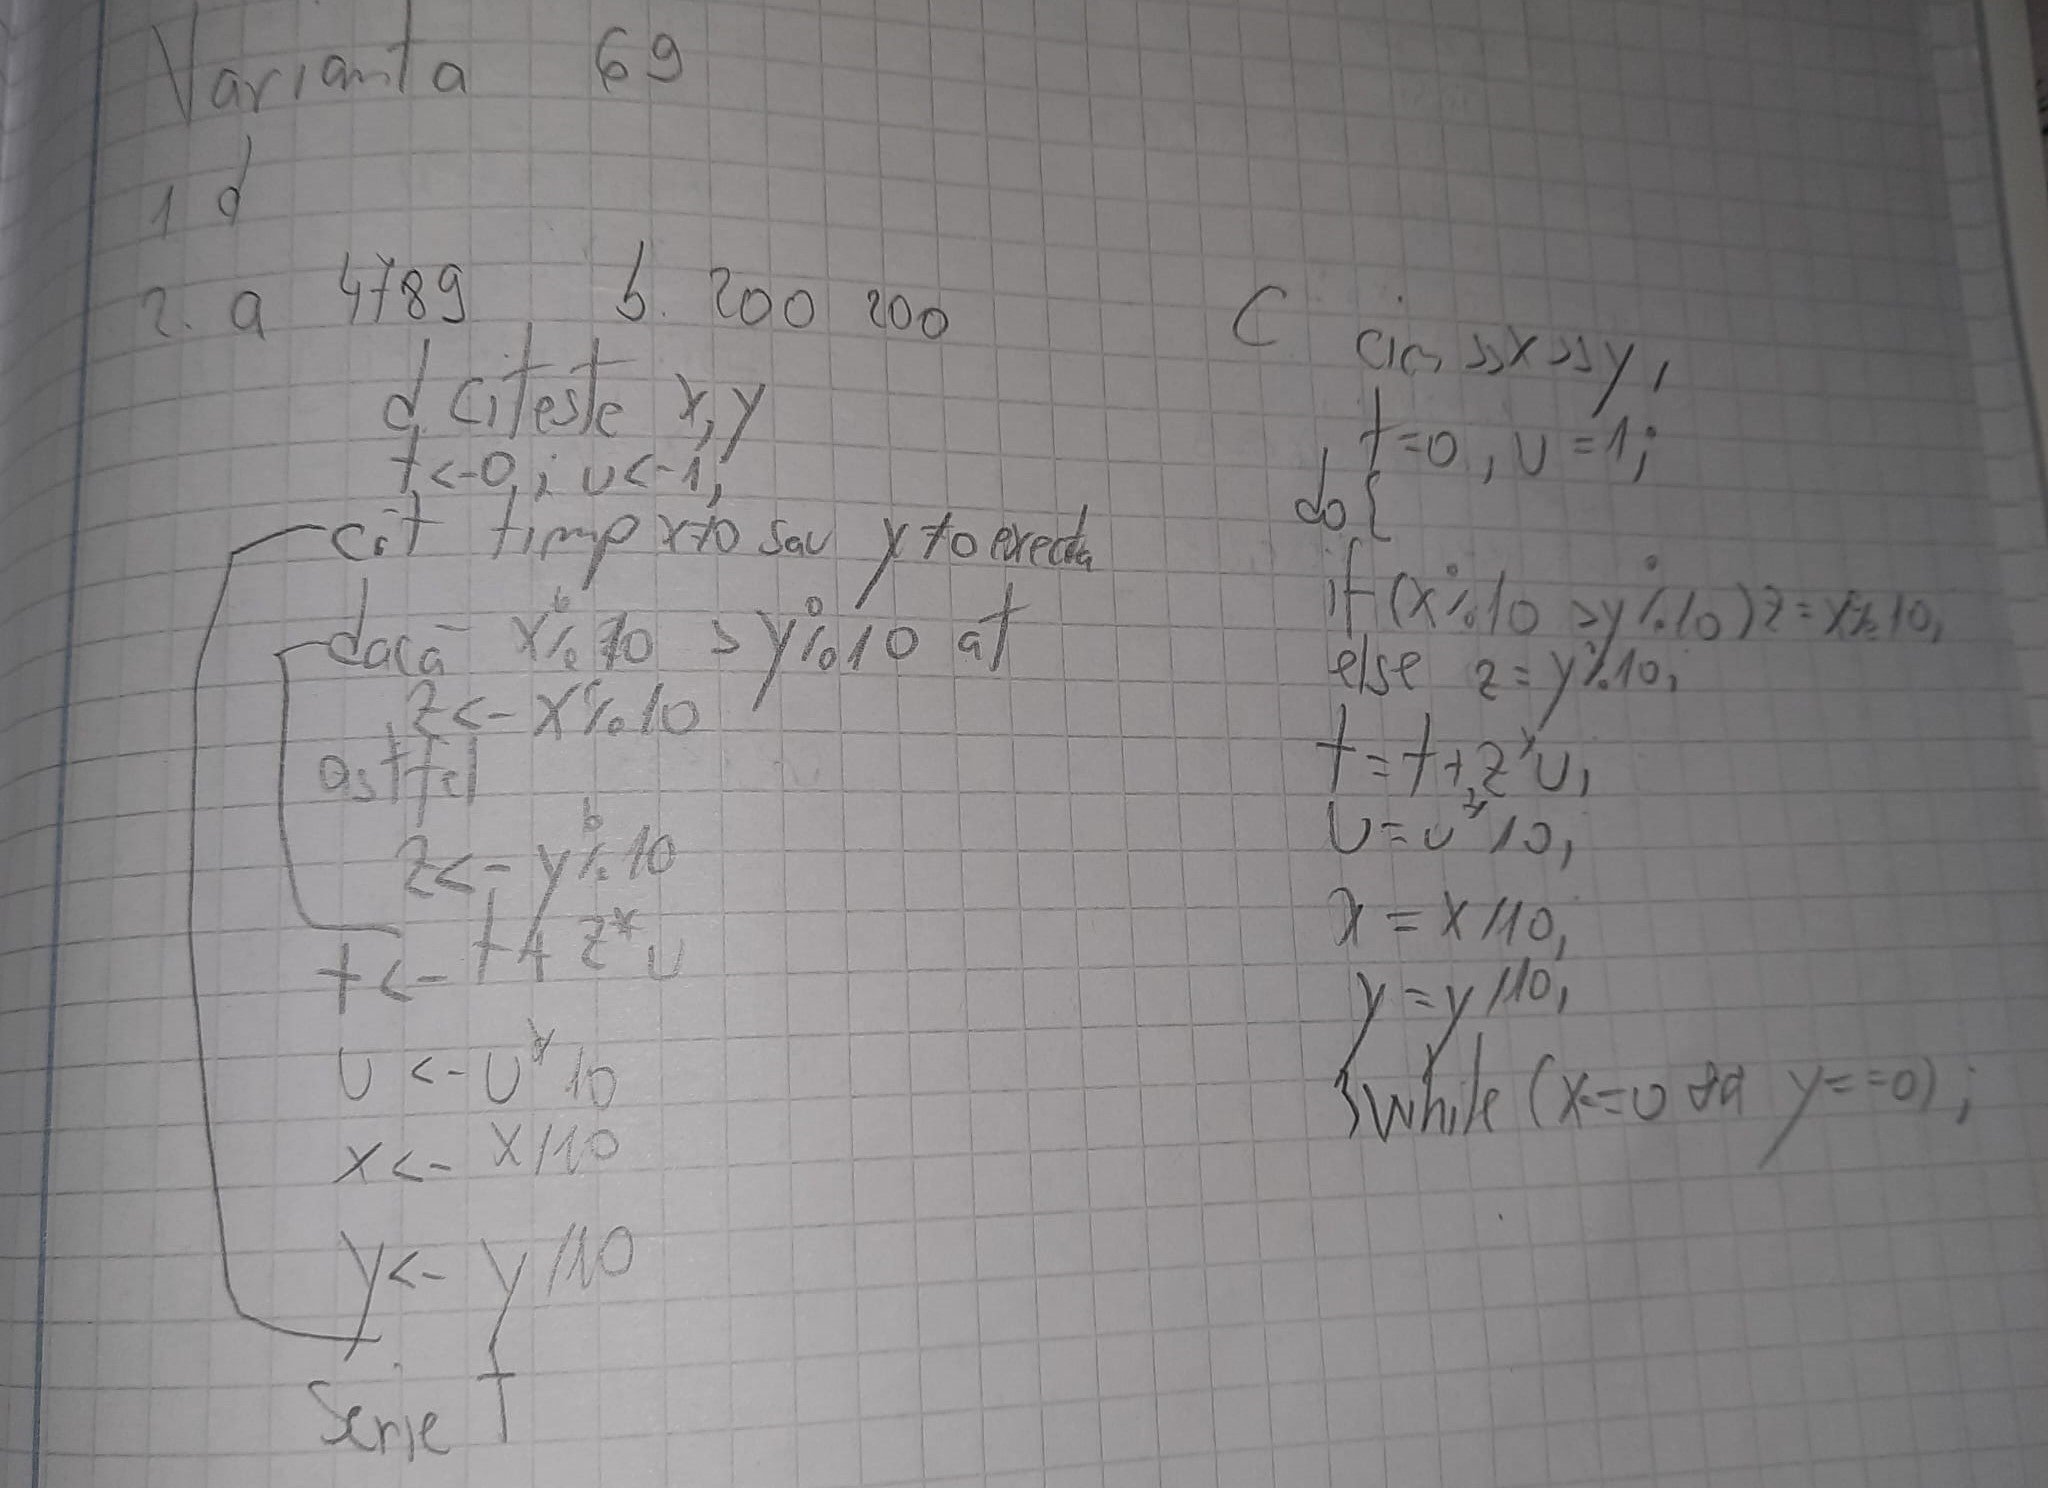 Varianta 69
1 d
2. a 4789 b. 200 200
d. citeste x, y
t<-0; u<-1;
cât timp x≠0 sau y≠0 executa
dacă x%10 > y%10 at
z<- x%10
astfel
z<- y%10
t<- t+z*u
u<-u*10
x<- x/10
y<- y/10
Scrie t
C cin>>x>>y;
t=0, u=1;
do{
if(x%10 >y%10) z=x%10;
else z=y%10;
t=t+z*u;
u=u*10;
x=x/10;
y=y/10;
}while(x==0 && y==0);